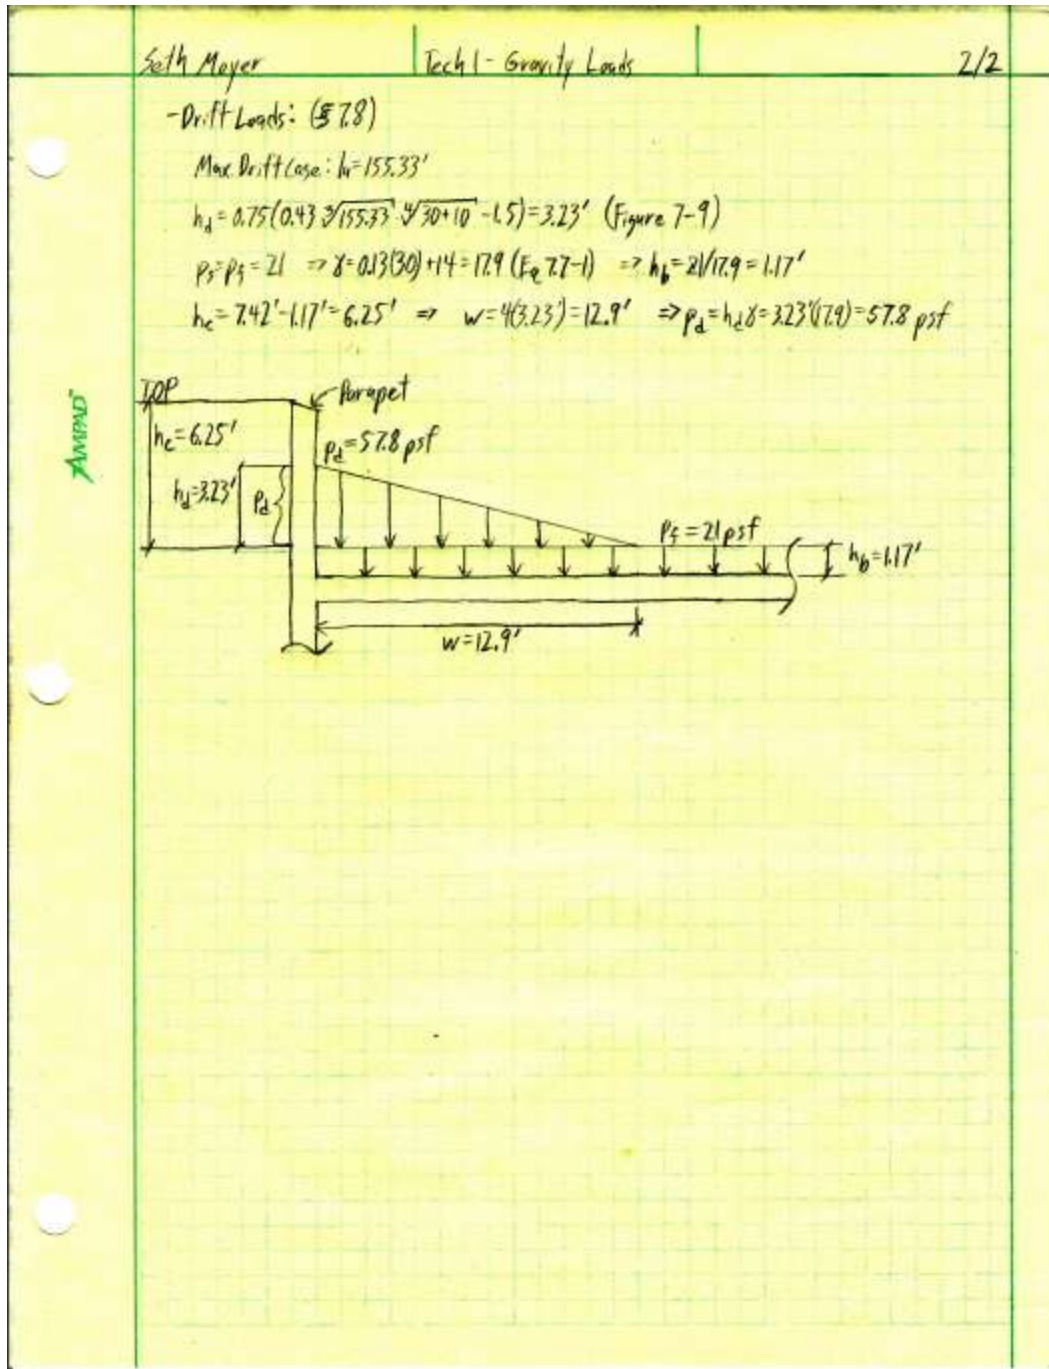 Seth Moyer Tech 1 - Gravity Loads 2/2
- Drift Loads: (§ 7.8)
Max Drift Case: lu=155.33'
hd = 0.75(0.43 ∛155.33 ∜30+10 -1.5)=3.23' (Figure 7-9)
ps=pf = 21 => γ=0.13(30)+14=17.9 (Eq 7.7-1) => hb = 21/17.9 = 1.17'
hc= 7.42'-1.17'= 6.25' => w=4(3.23')=12.9' => pd=hdγ=3.23'(17.9)=57.8 psf
TOP
Parapet
hc=6.25'
pd=57.8 psf
hd=3.23'
Pd
Pf = 21 psf
hb=1.17'
w=12.9'
AMPAD™